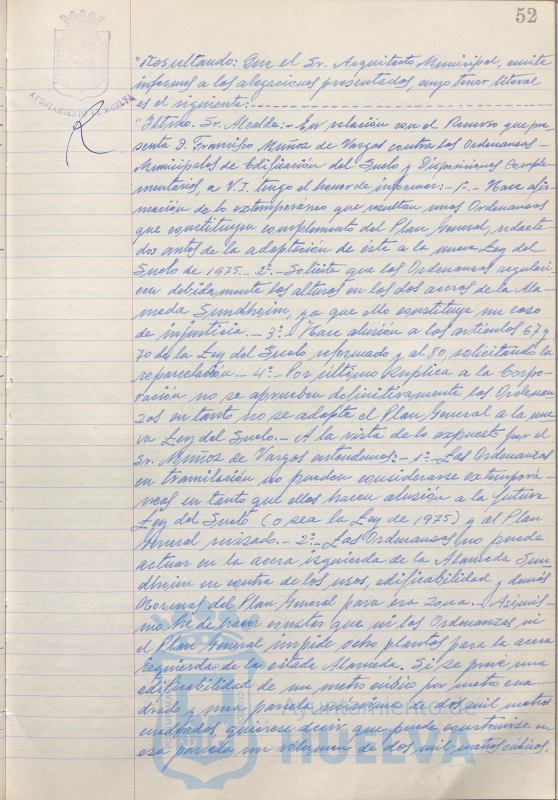 52
AYUNTAMIENTO DE HUELVA
"Resultando: Que el Sr. Arquitecto Municipal, emite
informe a las alegaciones presentadas, cuyo tenor literal
es el siguiente:
"Iltmo. Sr. Alcalde:- En relación con el Recurso que pre
senta D. Francisco Muñoz de Vargas contra las Ordenanzas
Municipales de Edificación del Suelo y Disposiciones Comple
mentarias, a V.I. tengo el honor de informar:- 1º.- Hace afir
mación de lo extemporáneo que resultan unas Ordenanzas
que constituyen complemento del Plan General, redacta
dos antes de la adaptación de éste a la nueva Ley del
Suelo de 1975.- 2º.- Solicita que las Ordenanzas regulari
cen debidamente las alturas en las dos aceras de la Ala-
meda Sundheim, ya que ello constituye un caso
de injusticia.- 3º.- Hace alusión a los artículos 67 y
70 de la Ley del Suelo reformado y al 80, solicitando la
reparcelación.- 4º.- Por último suplica a la Corpo-
ración no se aprueben definitivamente las Ordenan
zas en tanto no se adapte el Plan General a la nue
va Ley del Suelo.- A la vista de lo expuesto por el
Sr. Muñoz de Vargas entendemos:- 1º.- Las Ordenanzas
en tramitación no pueden considerarse extemporá-
neas en tanto que ellas hacen alusión a la futura
Ley del Suelo (o sea la Ley de 1975) y al Plan
General revisado.- 2º.- Las Ordenanzas no puede
actuar en la acera izquierda de la Alameda Sun
dheim en contra de los usos, edificabilidad y demás
Normas del Plan General para esa zona. Asimis
mo he de hacer constar que ni las Ordenanzas ni
el Plan General impide ocho plantas para la acera
izquierda de la citada Alameda. Si se prevé una
edificabilidad de un metro cúbico por metro cua-
drado y una parcela mínima de dos mil metros
cuadrados, quiere decir que puede construirse en
esa parcela un volumen de dos mil metros cúbicos,
HUELVA